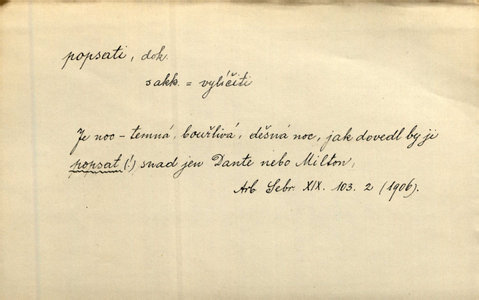 popsati, dok.
s akk. = vylíčiti
Je noc – temná, bouřlivá, děsná noc, jak dovedl by ji
popsat (!) snad jen Dante nebo Milton,
Arb Sebr. XIX. 103. 2 (1906).